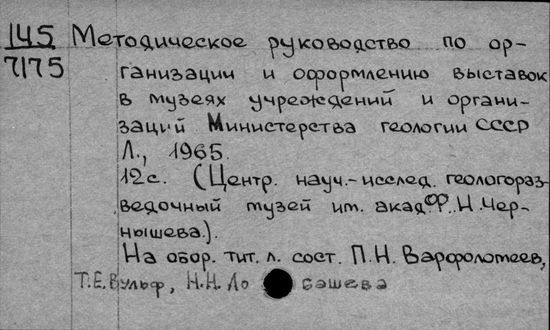 145 Методическое руководство по ор-
7175 ганизации и оформлению выставок
в музеях учреждений и органи-
заций Министерства геологии СССР
Л., 1965.
12с. (Центр. науч.-исслед. геологораз-
ведочный музей им. акад. Ф.Н.Чер-
нышева.).
На обор. тит. л. сост. П.Н. Варфоломеев,
Т.Е.Вульф, Н.Н. Ло башева